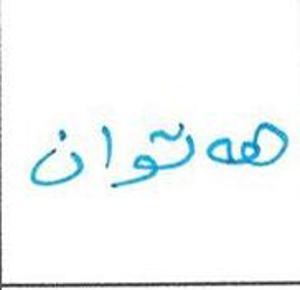 هەتوان